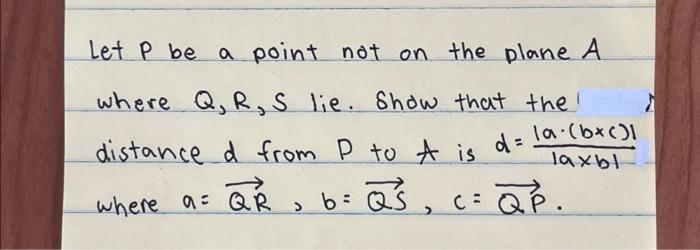 Let P be a point not on the plane A
where Q, R, S lie. Show that the
distance d from P to A is d = |a·(b×c)| / |a×b|
where a = \overrightarrow{QR}, b = \overrightarrow{QS}, c = \overrightarrow{QP}.